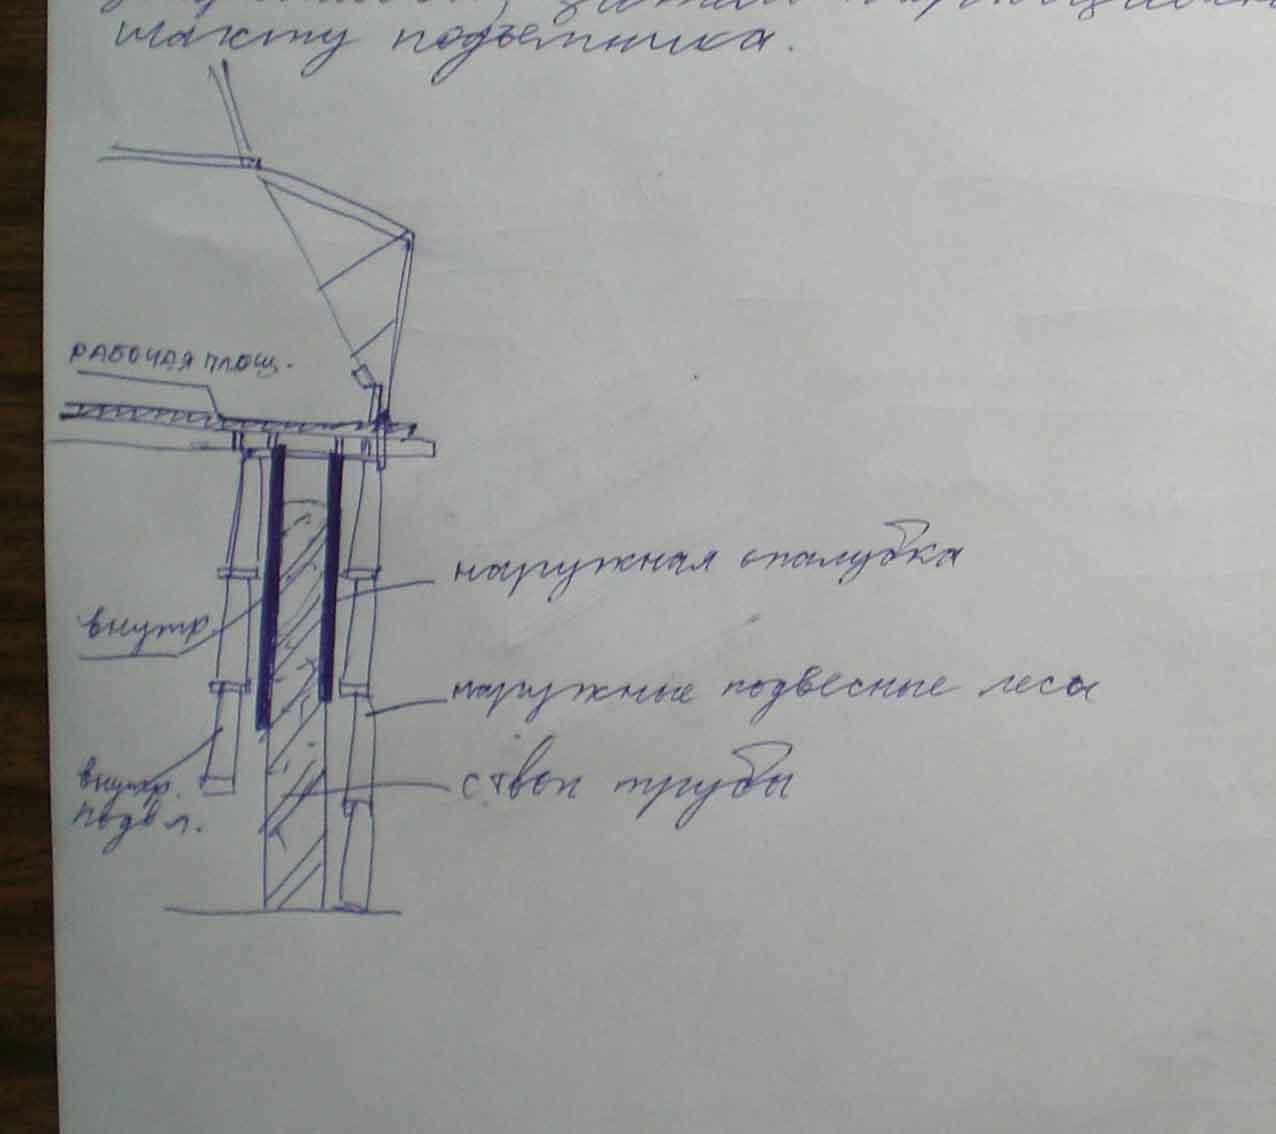 шахту подъемника.
РАБОЧАЯ ПЛОЩ.
наружная опалубка
внутр
наружные подвесные леса
внутр.
подв л.
ствол трубы